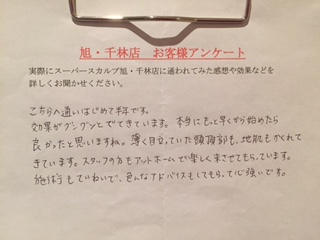 旭・千林店　お客様アンケート
実際にスーパースカルプ旭・千林店に通われてみた感想や効果などを
詳しくお聞かせください。
こちらへ通いはじめて半年です。
効果がグングンとでてきています。本当にもっと早くから始めたら
良かったと思いますね。薄く目立っていた頭頂部も、地肌もかくれて
きています。スタッフの方もアットホームで楽しく来させてもらっています。
施術もていねいで、色んなアドバイスもしてもらって心強いです。